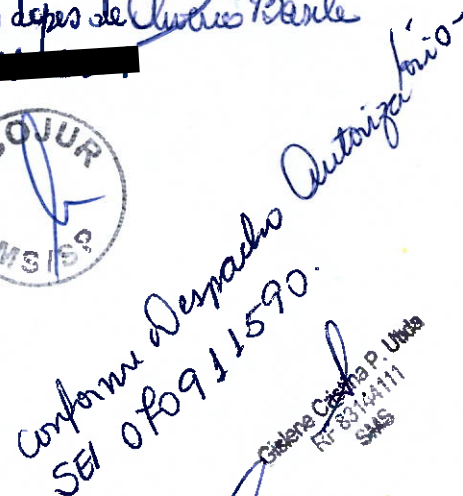 Lopes de Oliveira Basile
COJUR
SMS/SP
conforme Despacho Autorizatório -
SEI 070911590.
Gislene P.
RF 83144111
SMS